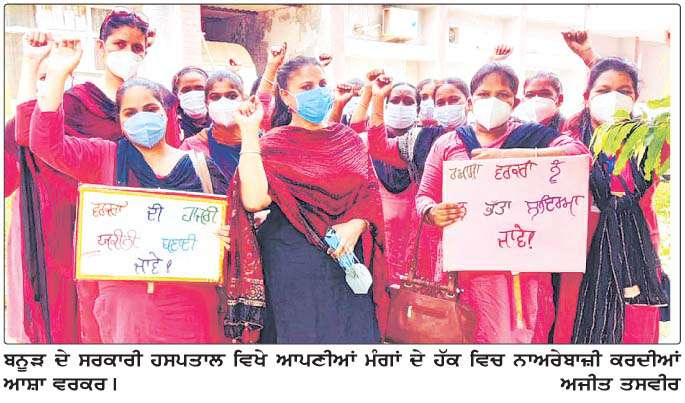 ਵਰਕਰਾਂ ਦੀ ਹਾਜ਼ਰੀ
ਯਕੀਨੀ ਬਣਾਈ
ਜਾਵੇ!
ਵਰਕਰਾਂ ਨੂੰ
ਭੱਤਾ
ਜਾਵੇ!
ਬਨੂੜ ਦੇ ਸਰਕਾਰੀ ਹਸਪਤਾਲ ਵਿਖੇ ਆਪਣੀਆਂ ਮੰਗਾਂ ਦੇ ਹੱਕ ਵਿਚ ਨਾਅਰੇਬਾਜ਼ੀ ਕਰਦੀਆਂ
ਆਸ਼ਾ ਵਰਕਰ। ਅਜੀਤ ਤਸਵੀਰ